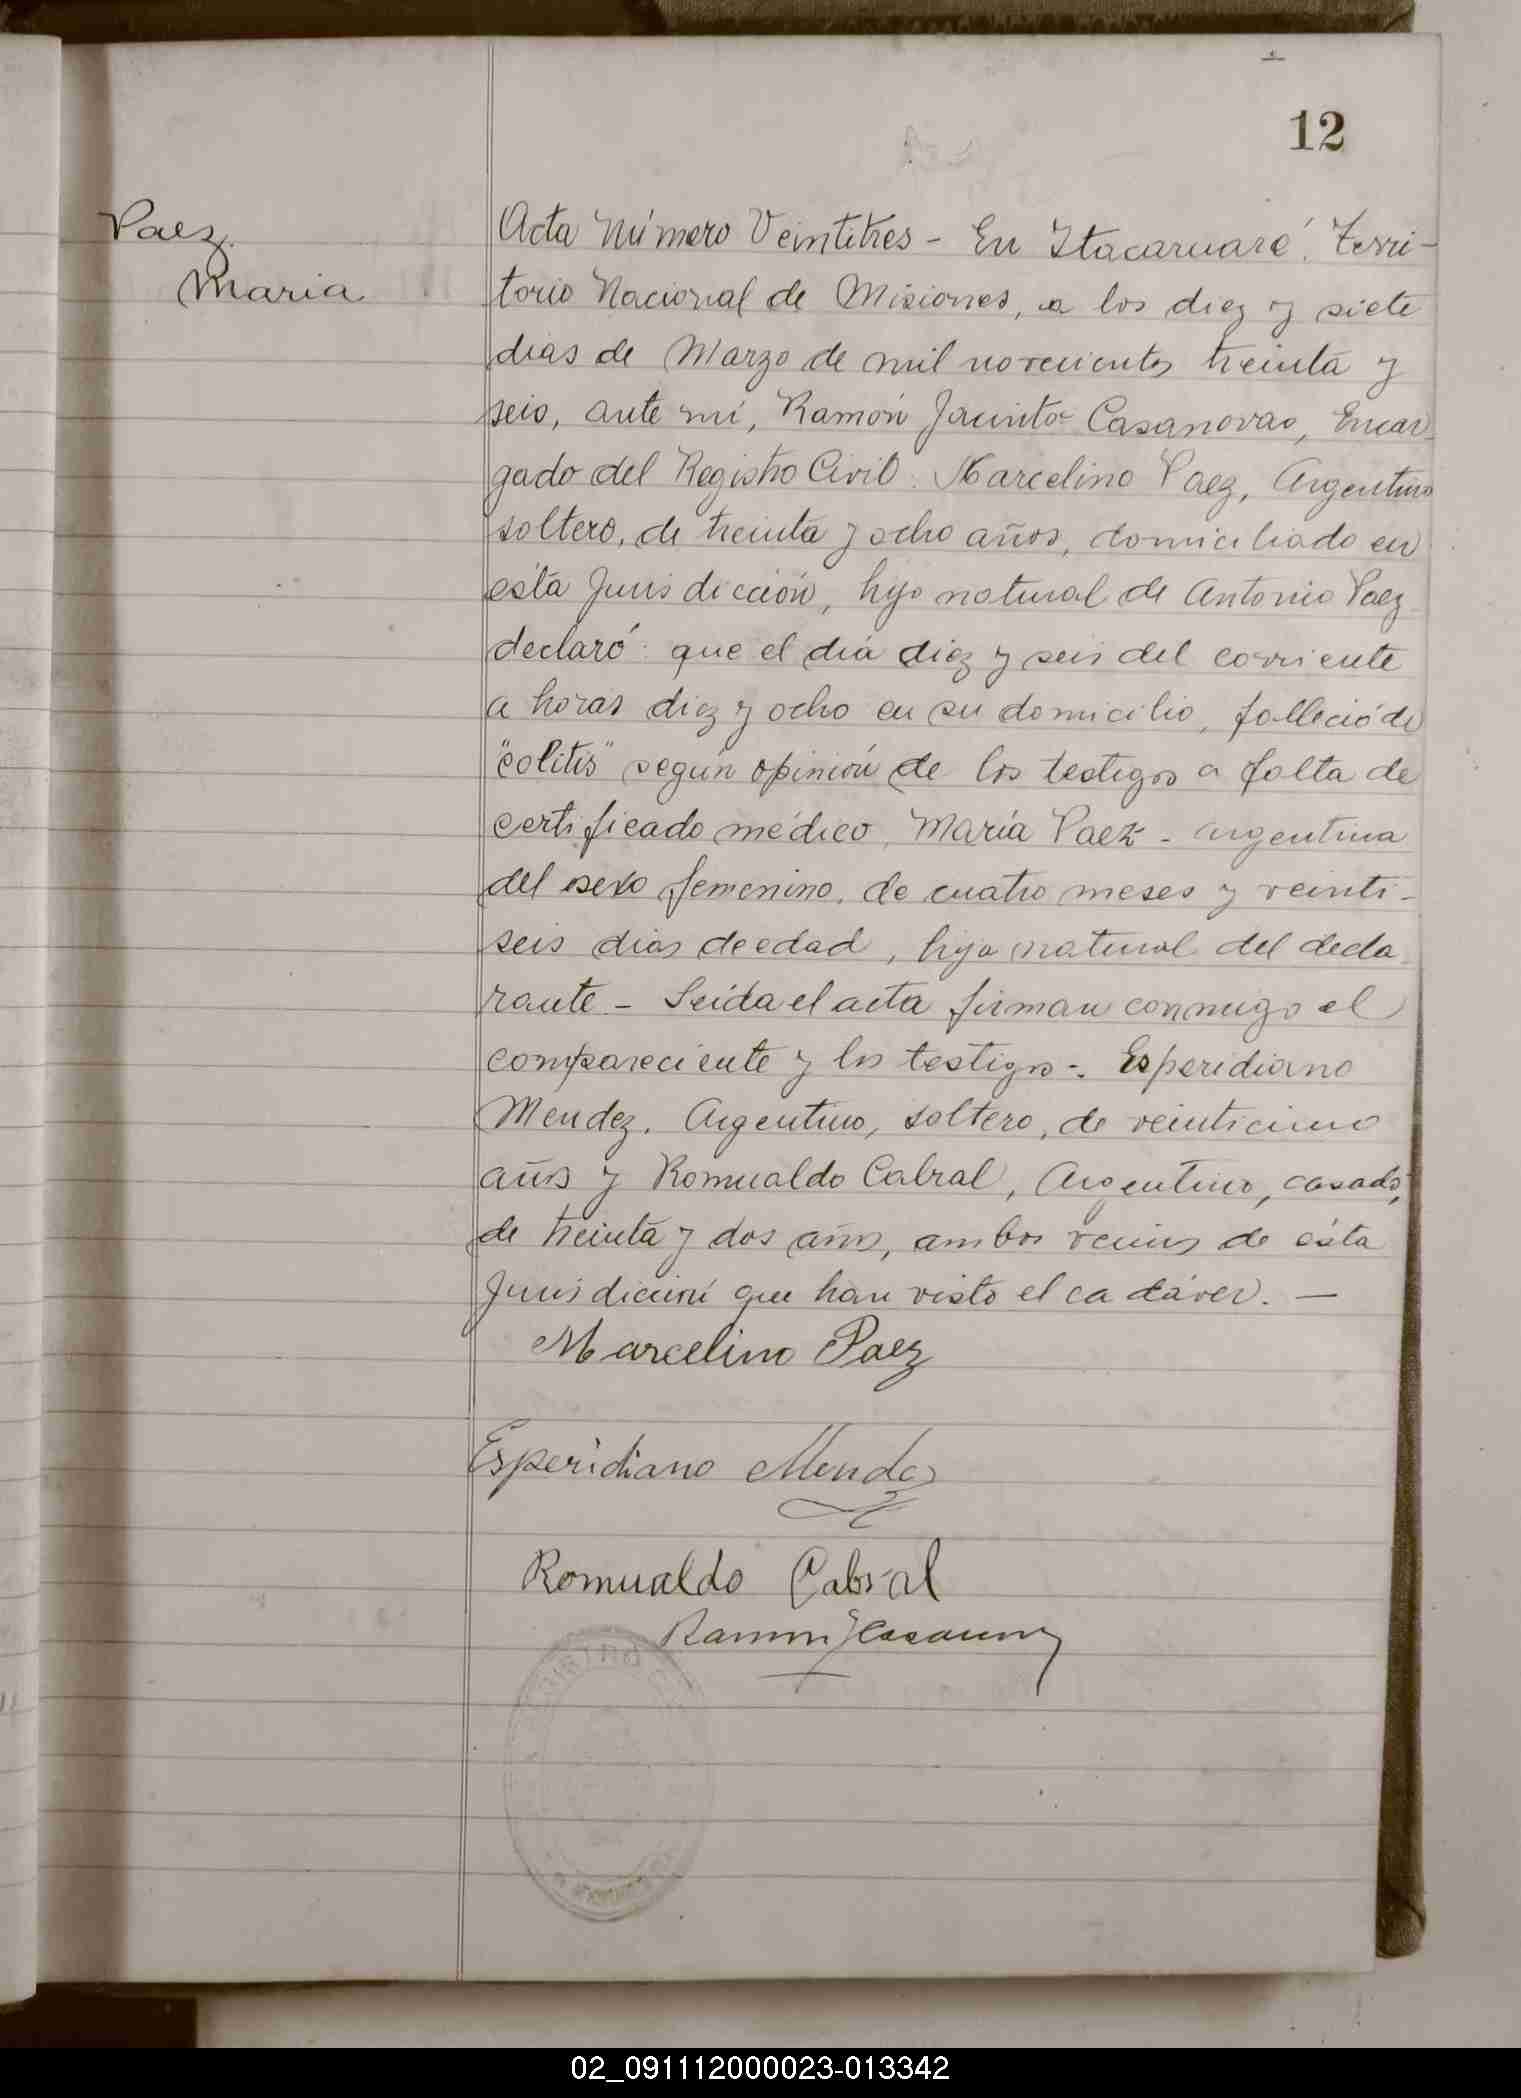 12
Paez
Maria
Acta Número Veintitres - En Itacaruaré, Terri-
torio Nacional de Misiones, a los diez y siete
dias de Marzo de mil novecientos treinta y
seis, ante mí, Ramón Jacinto Casanovas, Encar-
gado del Registro Civil: Marcelino Paez, Argentino
soltero, de treinta y ocho años, domiciliado en
ésta Jurisdicción, hijo natural de Antonio Paez
declaró: que el día diez y seis del corriente
a horas diez y ocho en su domicilio, falleció de
"colitis" según opinión de los testigos a falta de
certificado médico, María Paez - argentina
del sexo femenino, de cuatro meses y veinti-
seis dias de edad, hija natural del decla-
rante - Leída el acta firman conmigo el
compareciente y los testigos -. Esperidiano
Mendez, Argentino, soltero, de veinticinco
años y Romualdo Cabral, Argentino, casado,
de treinta y dos años, ambos vecinos de ésta
Jurisdicción que han visto el cadáver. —
Marcelino Paez
Esperidiano Mendez
Romualdo Cabral
Ramon J Casanovas
02_091112000023-013342